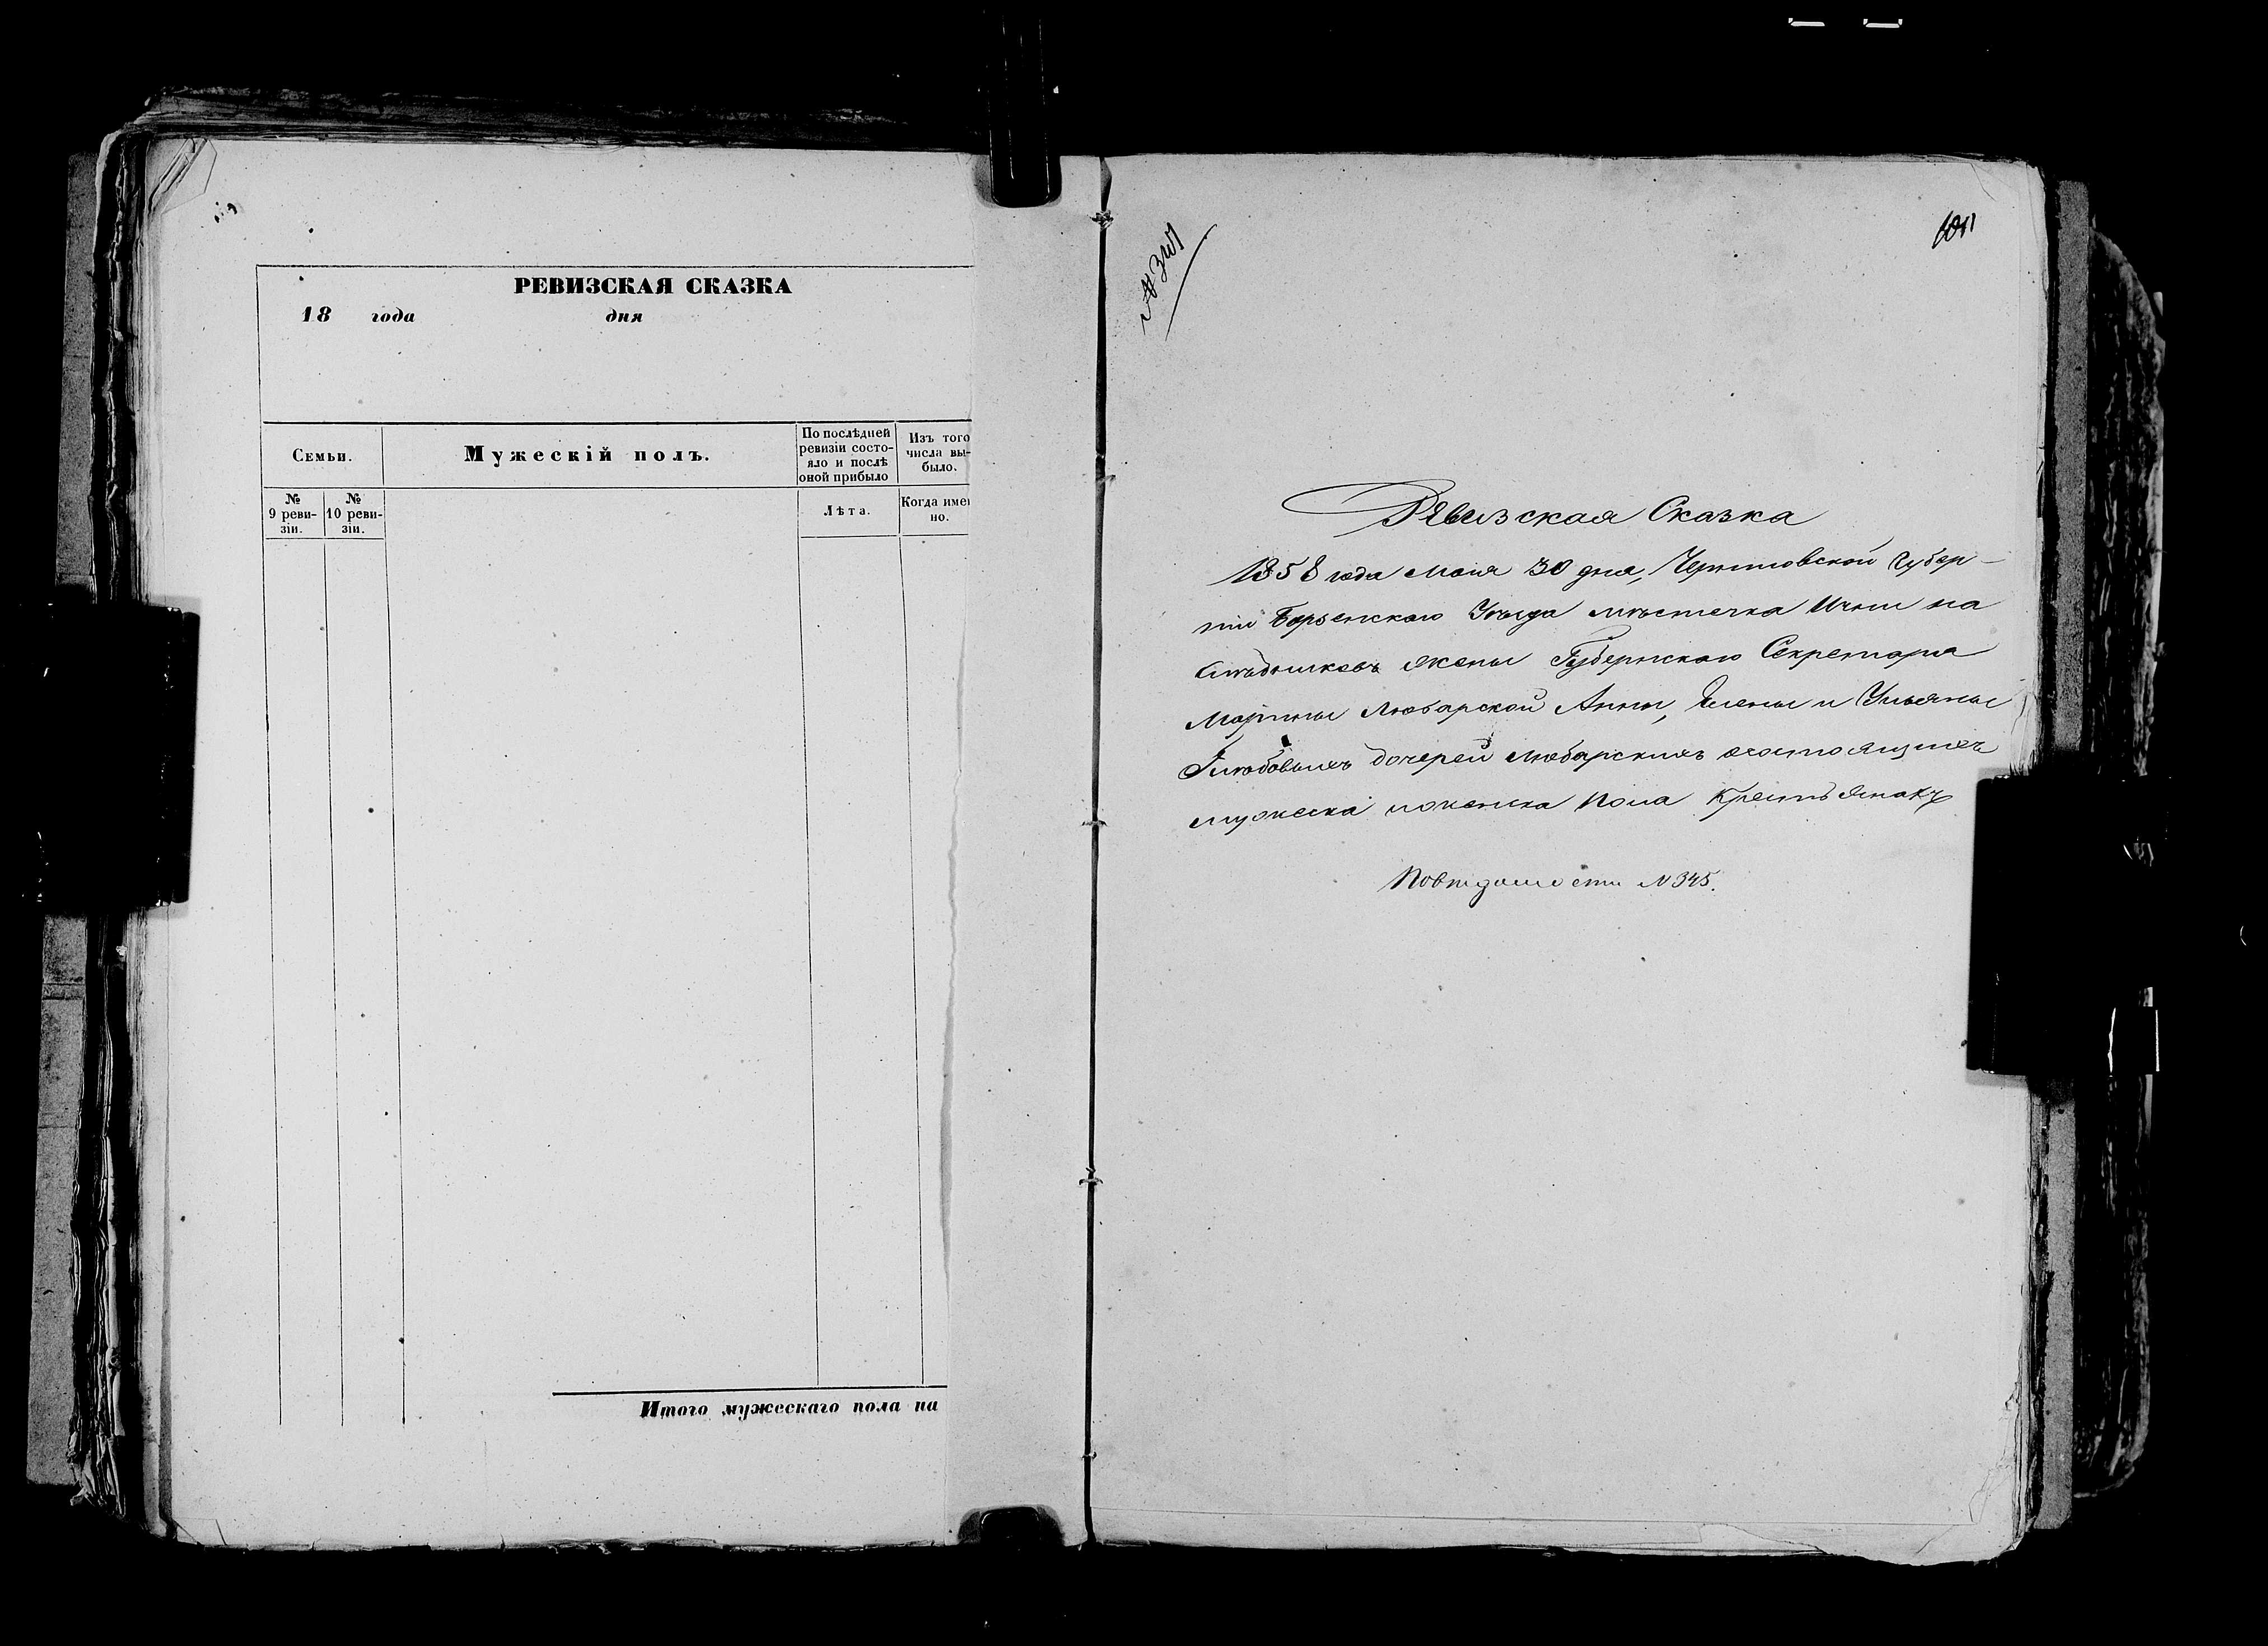 РЕВИЗСКАЯ СКАЗКА
18 года дня
Семьи.
Мужескій полъ.
По послѣдней
ревизіи состо-
яло и послѣ
оной прибыло
Изъ того
числа вы-
было.
№
9 реви-
зіи.
№
10 реви-
зіи.
Лѣта.
Когда имен
но.
Итого мужескаго пола на
Ревизская Сказка
1858 года Мая 30 дня, Черниговской Губер-
ніи Борзенскаго Уѣзда мѣстечка Ични на
слѣдниковъ жены Губернскаго Секретаря
Марины Любарской Анны, Елены и Ульяны
дочерей Любарскихъ состоящихъ
мужеска и женска пола крестьянахъ
По вѣдомости N 345.